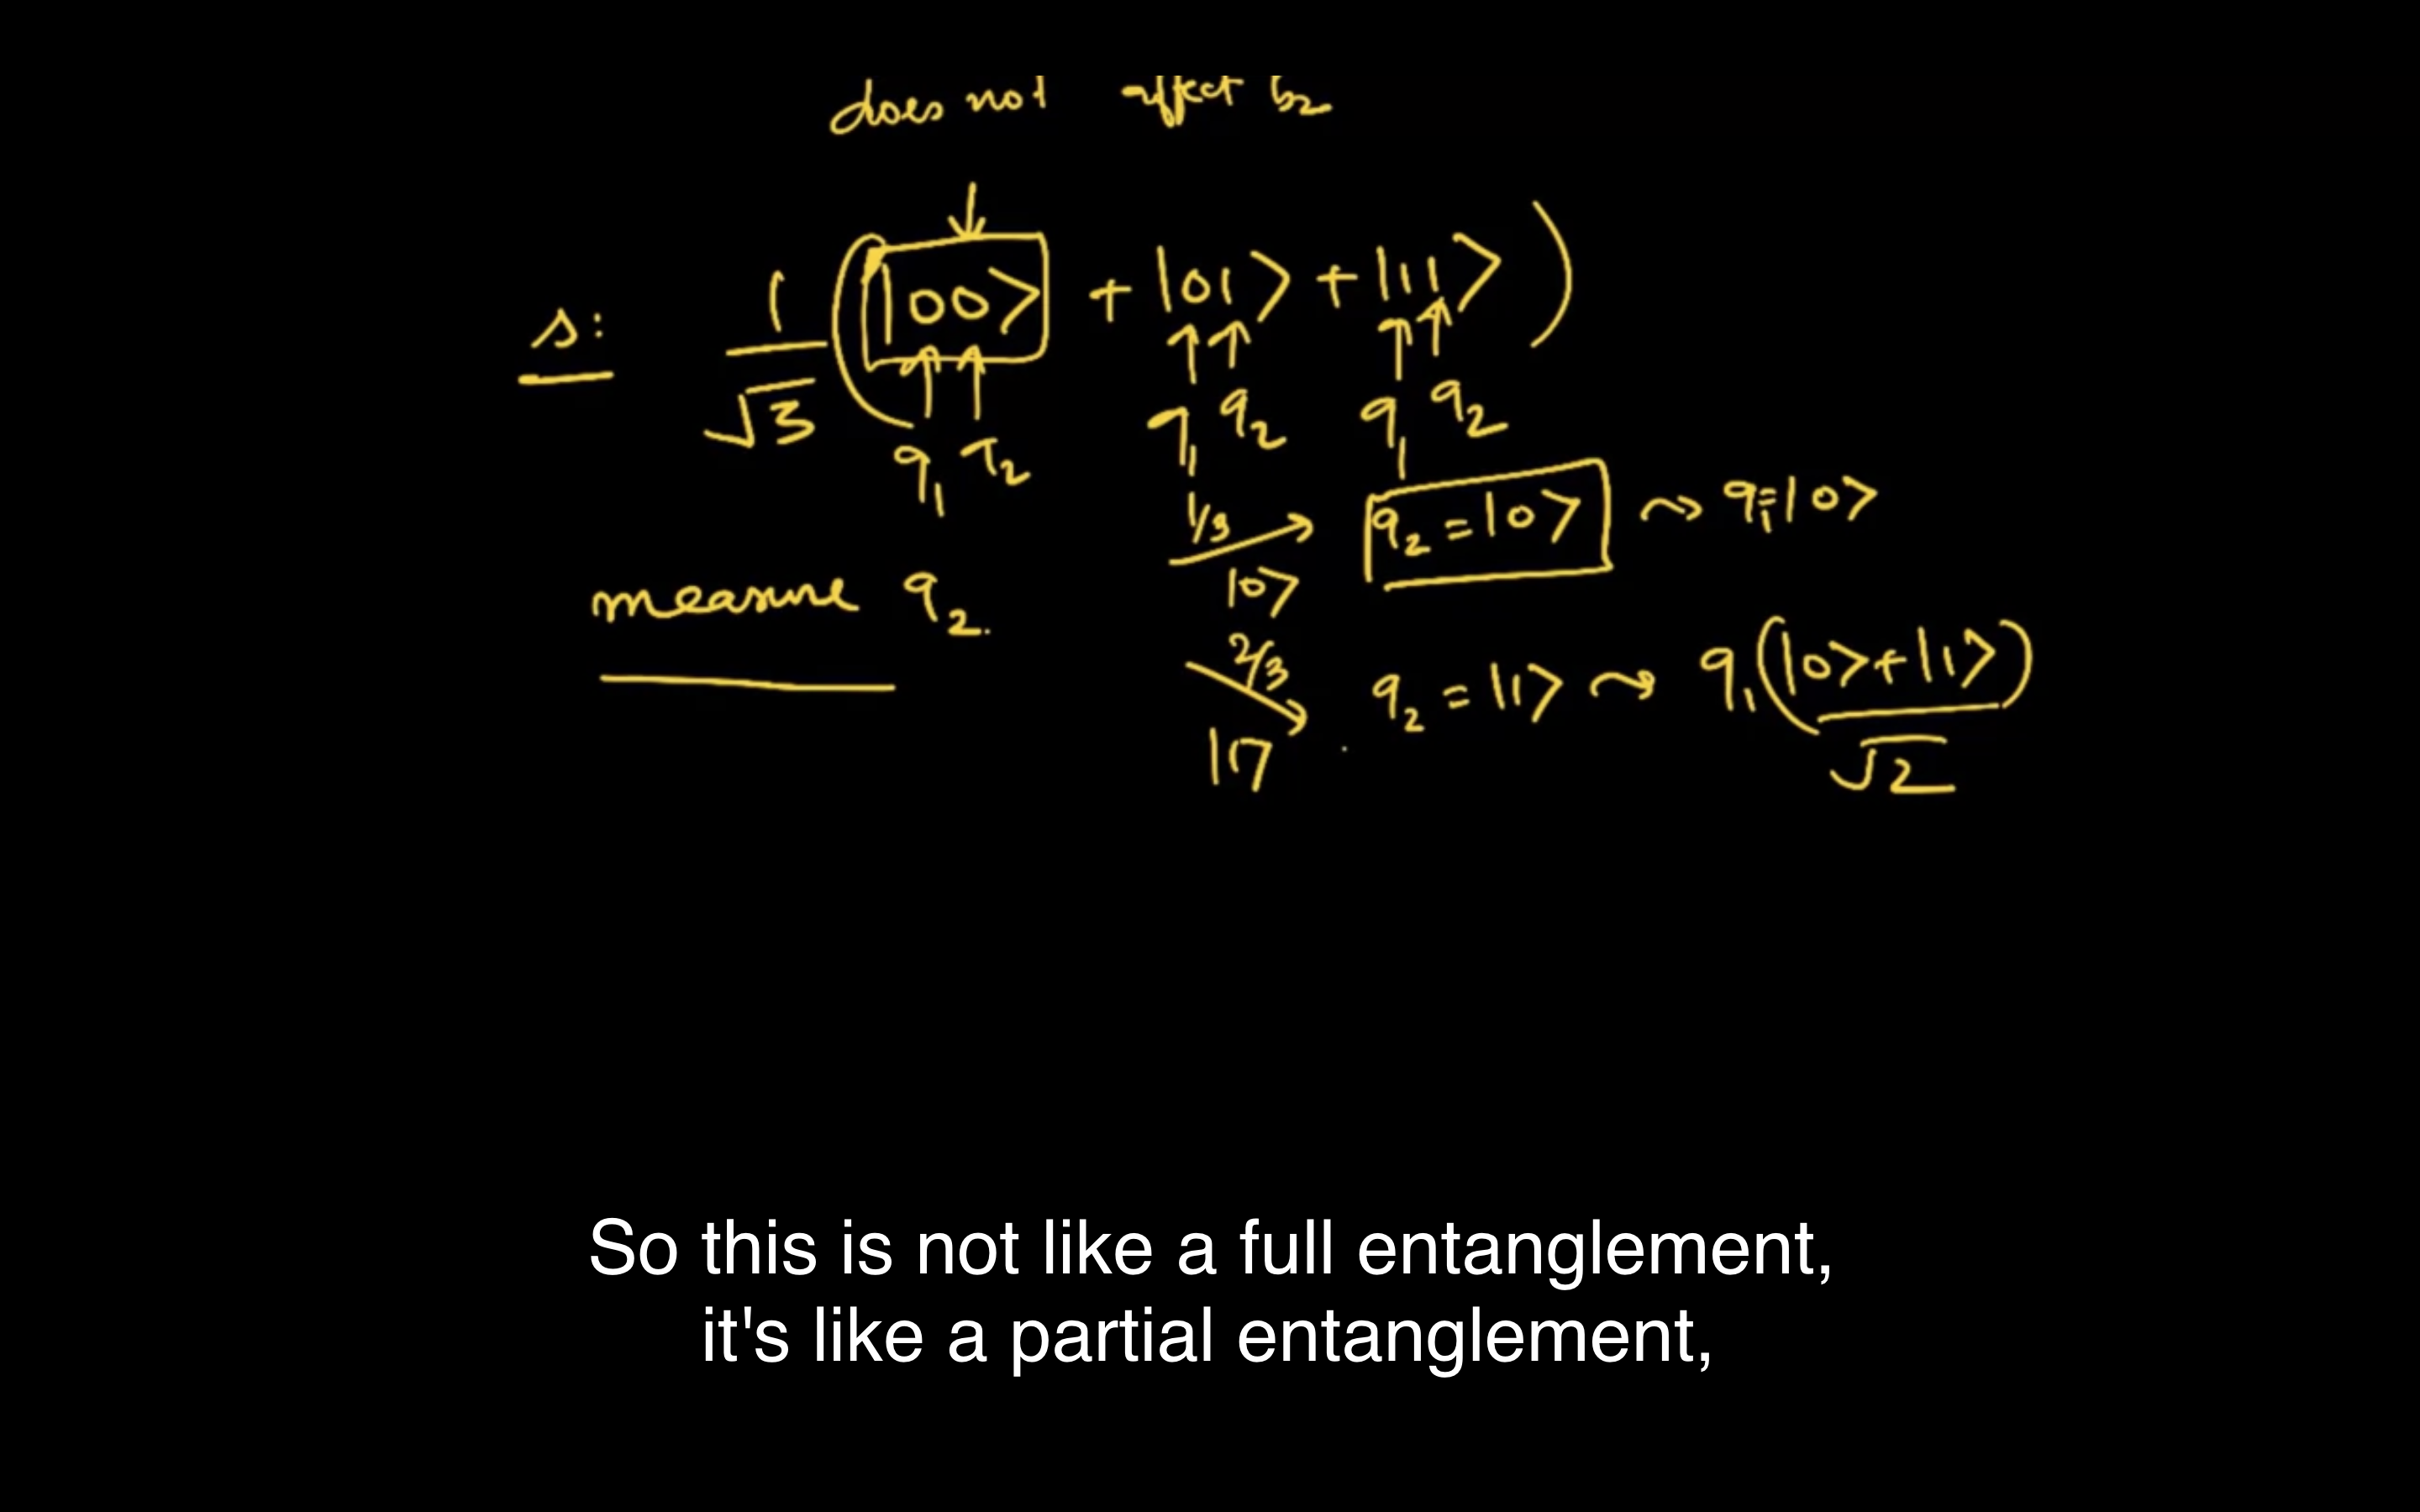 does not affect b2
s: 1/√3 (|00⟩ + |01⟩ + |11⟩)
q1 q2 q1 q2 q1 q2
1/3 |0⟩ q2 = |0⟩ ⇝ q1=|0⟩
measure q2.
2/3 |1⟩ q2 = |1⟩ ⇝ q1(|0⟩+|1⟩)/√2
So this is not like a full entanglement,
it's like a partial entanglement,